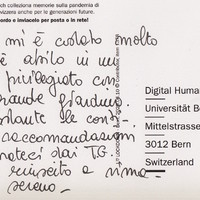 ch colleziona memorie sulla pandemia di
vizzera anche per le generazioni future.
ordo e inviacelo per posta o in rete!
mi è costato molto
è abito in un
privilegiato con
grande giardino.
stante le con-
raccomandazioni
dai TG.
riuscito a rima-
sereno.
Digital Huma
Universität Be
Mittelstrasse
3012 Bern
Switzerland